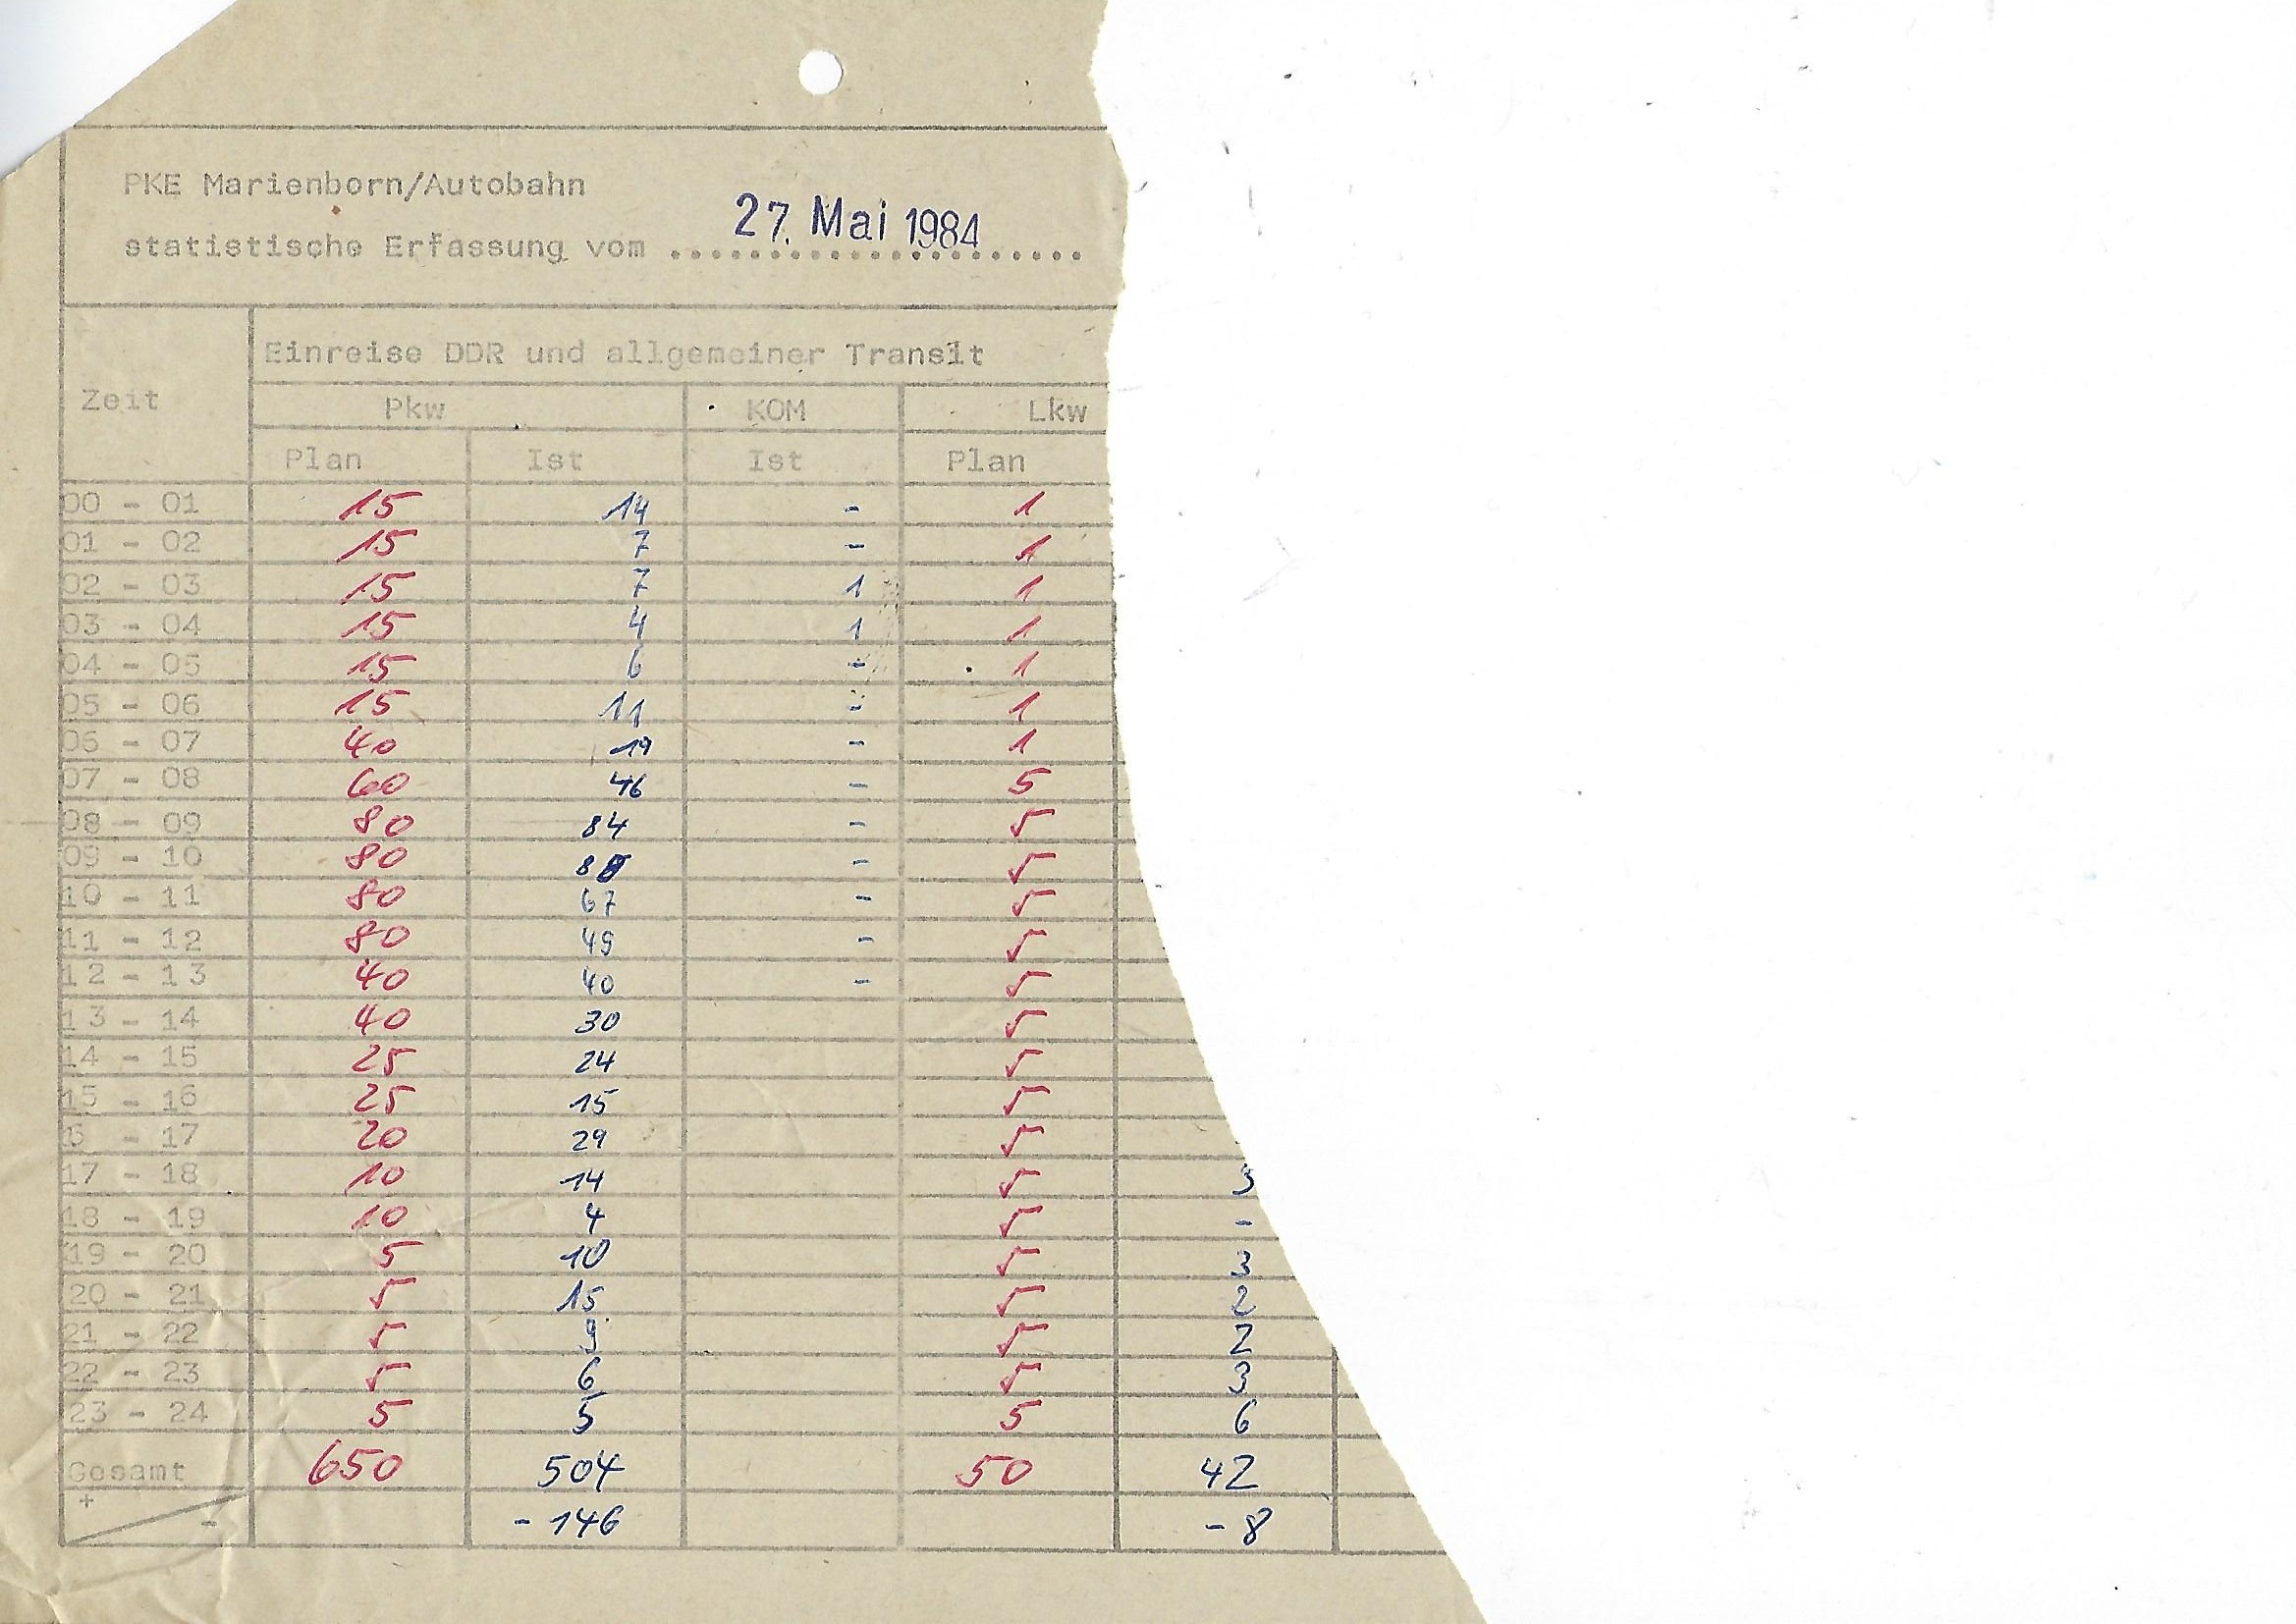 PKE Marienborn/Autobahn
27. Mai 1984
statistische Erfassung vom .....................
Einreise DDR und allgemeiner Transit
Zeit
Pkw KOM Lkw
Plan Ist Ist Plan
00 - 01 15 14 - 1
01 - 02 15 7 - 1
02 - 03 15 7 1 1
03 - 04 15 4 1 1
04 - 05 15 6 - 1
05 - 06 15 11 - 1
06 - 07 40 19 - 1
07 - 08 60 46 - 5
08 - 09 80 84 - 5
09 - 10 80 - 5
10 - 11 80 67 - 5
11 - 12 80 49 - 5
12 - 13 40 40 - 5
13 - 14 40 30 5
14 - 15 25 24 5
15 - 16 25 15 5
6 - 17 20 29 5
17 - 18 10 14 5 3
18 - 19 10 4 5 -
19 - 20 5 10 5 3
20 - 21 5 15 5 2
21 - 22 5 9 5 2
22 - 23 5 6 5 3
23 - 24 5 5 5 6
Gesamt 650 504 50 42
+
- - 146 - 8